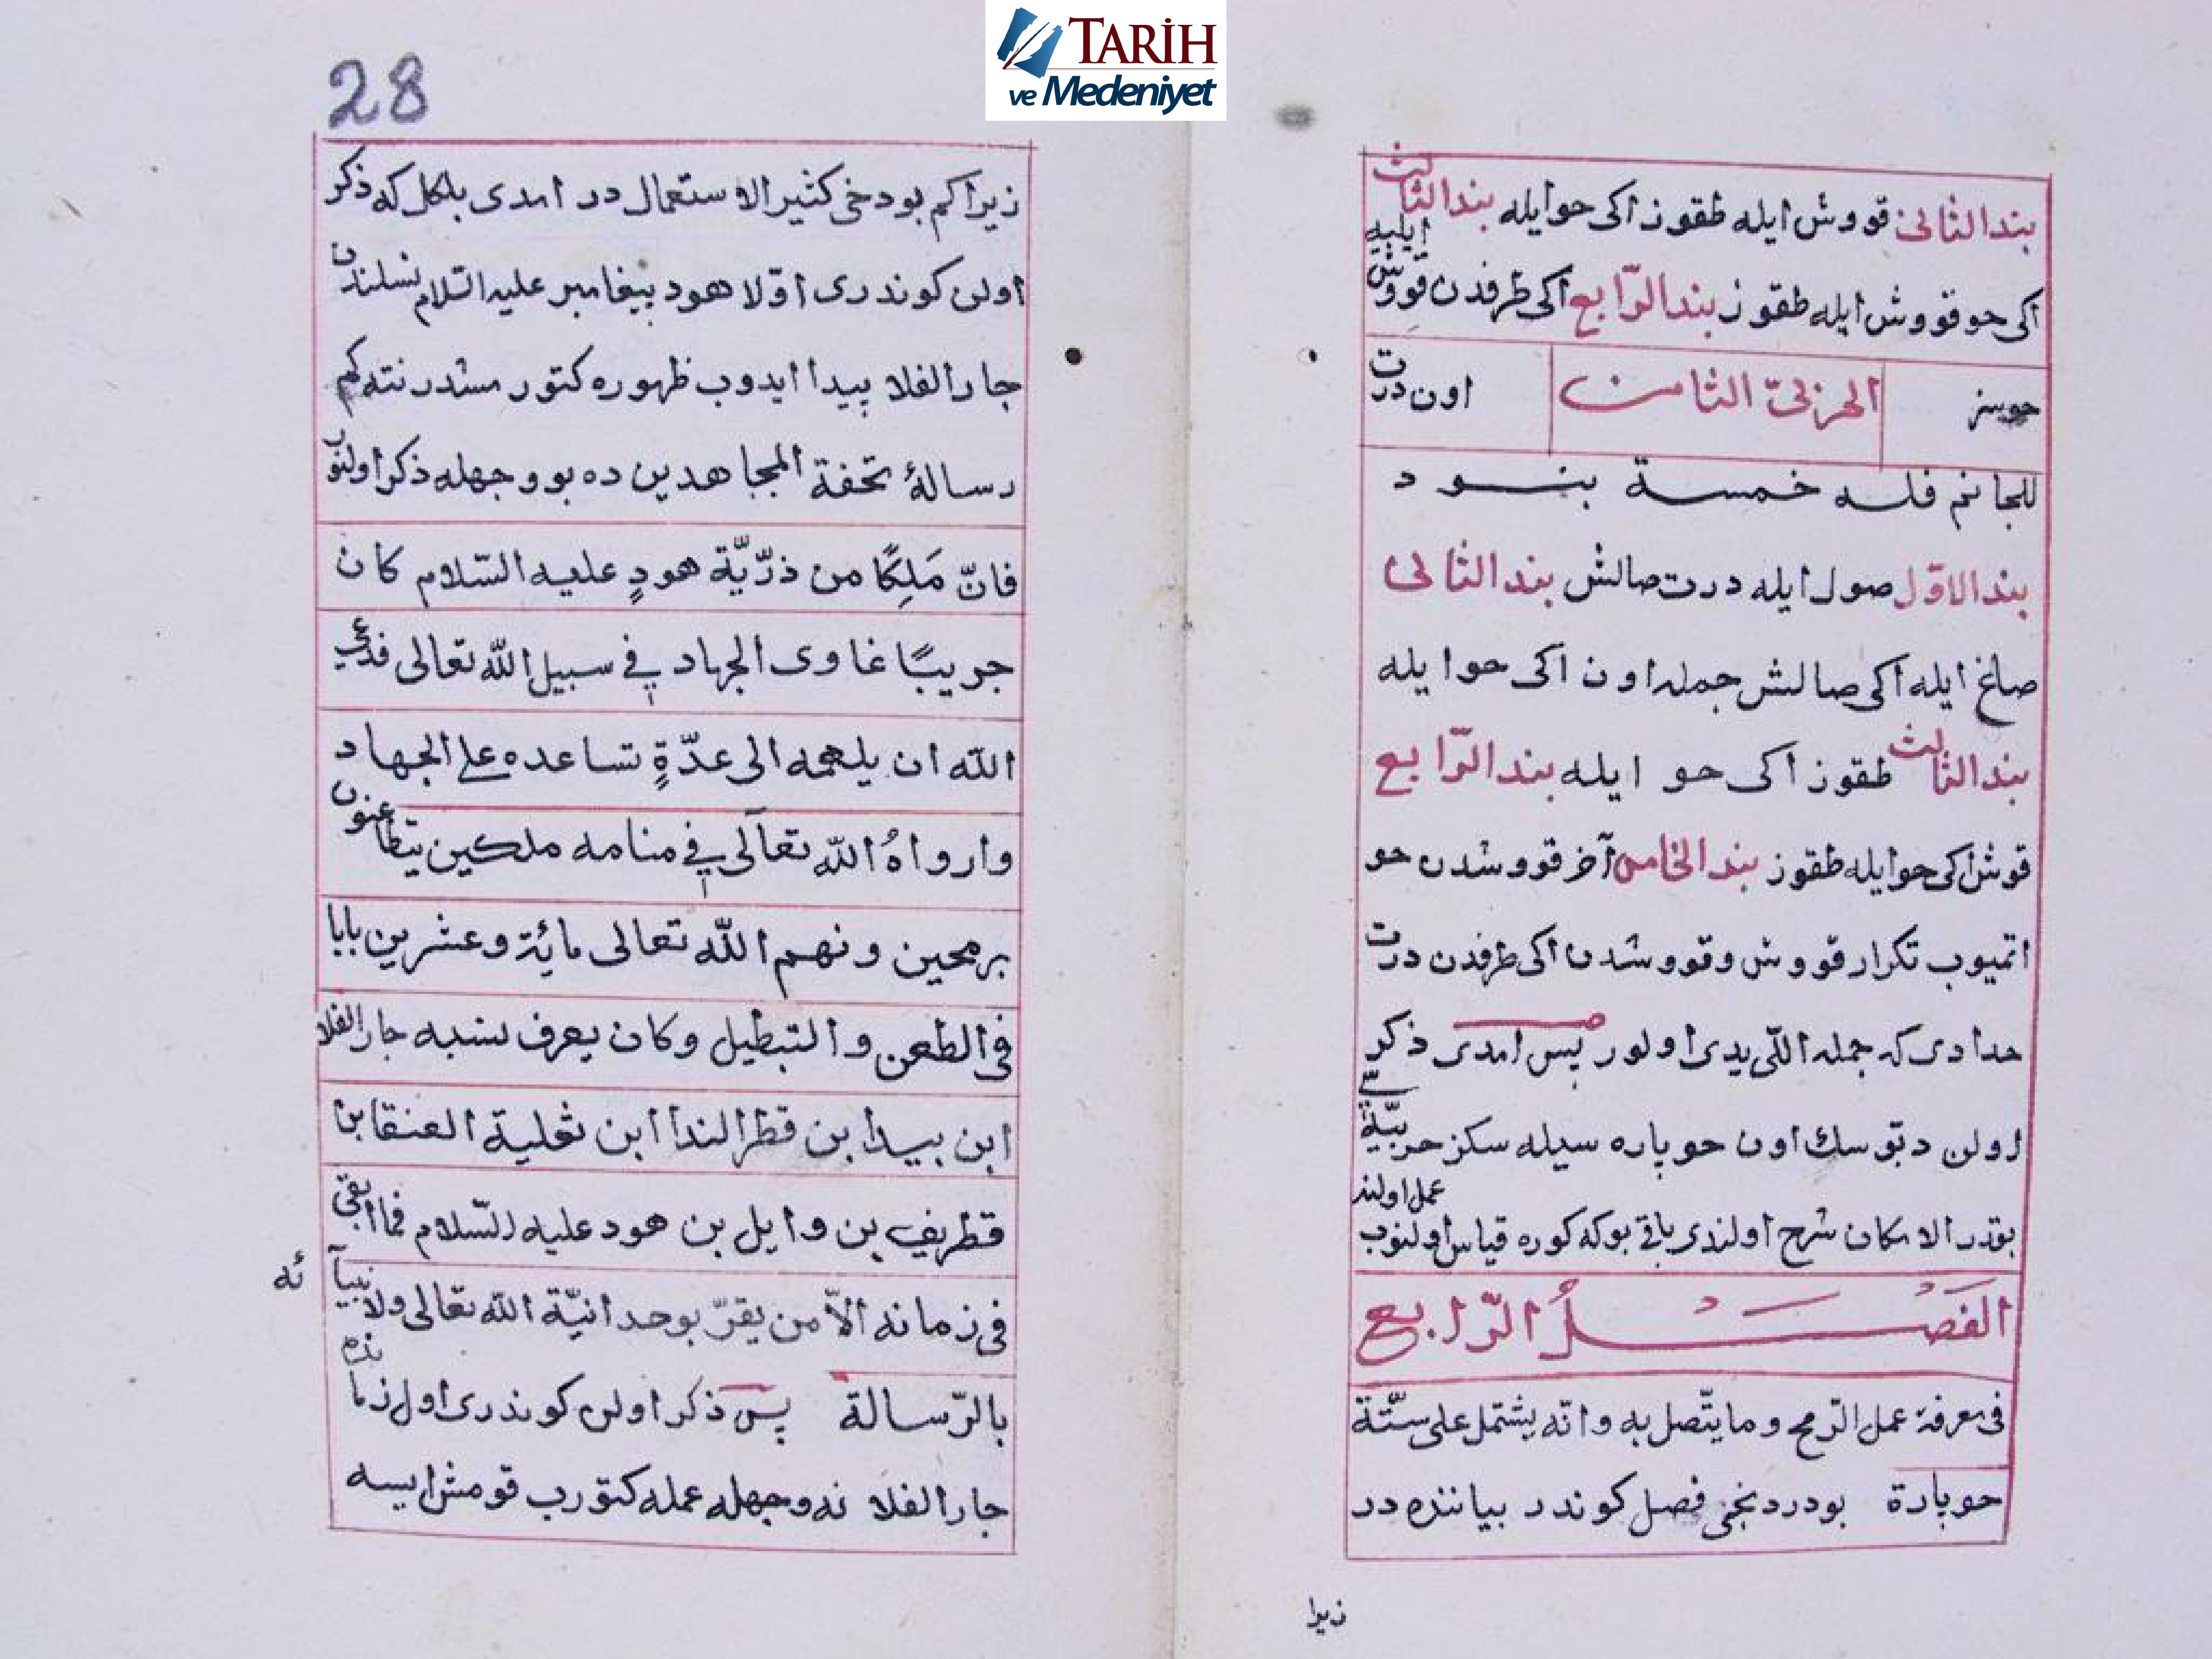 TARİH
ve Medeniyet
بندالثانى قووش ايله طقوز اكى حوايله بندالثالث
اكى حو قووش ايله طقوز بندالرّابع اكى طرفدن قووش ايليه
حوسز الحزنىّ الثامن اون درت
للجانم فلسه خمسة بنود
بندالاوّل صول ايله درت صالش بندالثانى
صاغ ايله اكى صالش جمله اون اكى حوايله
بندالثالث طقوز اكى حو ايله بندالرّابع
قوش اكى حوايله طقوز بندالخامس آخر قووشدن حو
اتميوب تكرار قووش وقووشدن اكى طرفدن درت
حدادى كه جمله اللّى يدى اولور پس امدى ذكرى
اولن دبّوسك اون حوپاره سيله سكز حربيّة
بقدر الامكان شرح اولندى باقى بوكه كوره قياس اولنوب عمل اولند
الفَصْلُ الرّابع
فى معرفة عمل الرّمح وما يتّصل به وانّه يشتمل على ستّة
حوبارة بودردنجى فصل كوندر بياننده در
زيرا
28
زيرا كم بودخى كثير الاستعمال در امدى بلكل كه ذكر
اولن كوندرى اوّلا هود پيغامبر عليه السّلام نسلندن
جار الفلا پيدا ايدوب ظهوره كتورمشدر نته كم
رسالۀ تحفة المجاهدين ده بو وجهله ذكر اولنور
فانّ مَلِكًا من ذرّيّة هودٍ عليه السّلام كان
جريبًا غاوى الجهاد فى سبيل الله تعالى فدعى
الله ان يلهمه الى عدّةٍ تساعده على الجهاد
واروَاهُ الله تعالى فى منامه ملكين يتطاعنون
برمحين ونهم الله تعالى مائة وعشرين بابا
فى الطعن والتبطيل وكان يعرف نسبه جار الفلا
ابن بيدا بن قطر الندا ابن ثعلية العنقا بن
قطريف بن وايل بن هود عليه السّلام فما ابقى
فى زمانه الاّ من يقرّ بوحدانيّة الله تعالى ولانبيآ ئه
بالرّسالة پس ذكر اولن كوندرى اول زماننده
جار الفلا نه وجهله عمله كتورب قومش ايسه